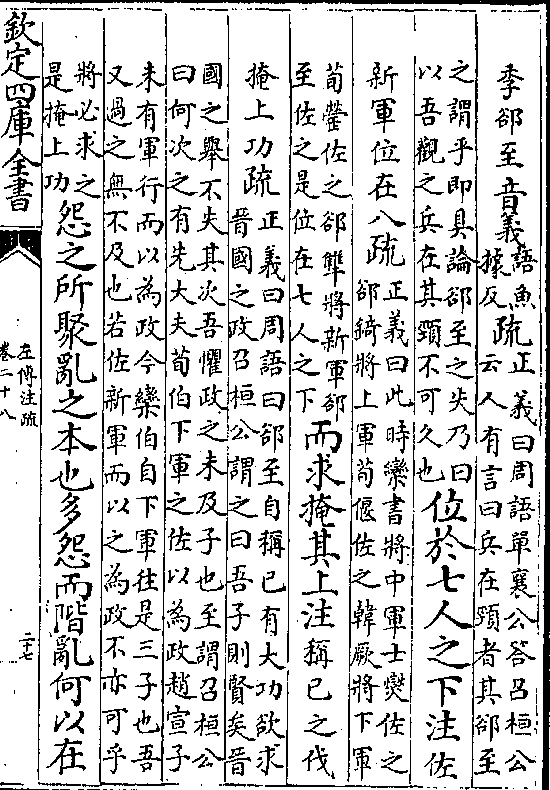 季郤至音義語魚據反疏正義曰周語單襄公答召桓公云人有言曰兵在頸者其郤至
之謂乎即具論郤至之失乃曰以吾觀之兵在其頸不可久也位於七人之下注佐
新軍位在八疏正義曰此時欒書將中軍士燮佐之郤錡將上軍荀偃佐之韓厥將下軍
荀罃佐之郤犨將新軍郤至佐之是位在七人之下而求掩其上注稱已之伐
掩上功疏正義曰周語曰郤至自稱已有大功欲求晉國之政召桓公謂之曰吾子則賢矣晉
國之舉不失其次吾懼政之未及子也至謂召桓公曰何次之有先大夫荀伯下軍之佐以為政趙宣子
未有軍行而以為政今欒伯自下軍往是三子也吾又過之無不及也若佐新軍而以之為政不亦可乎
將必求之是掩上功怨之所聚亂之本也多怨而階亂何以在
欽定四庫全書
左傳注疏
卷二十八
二十七